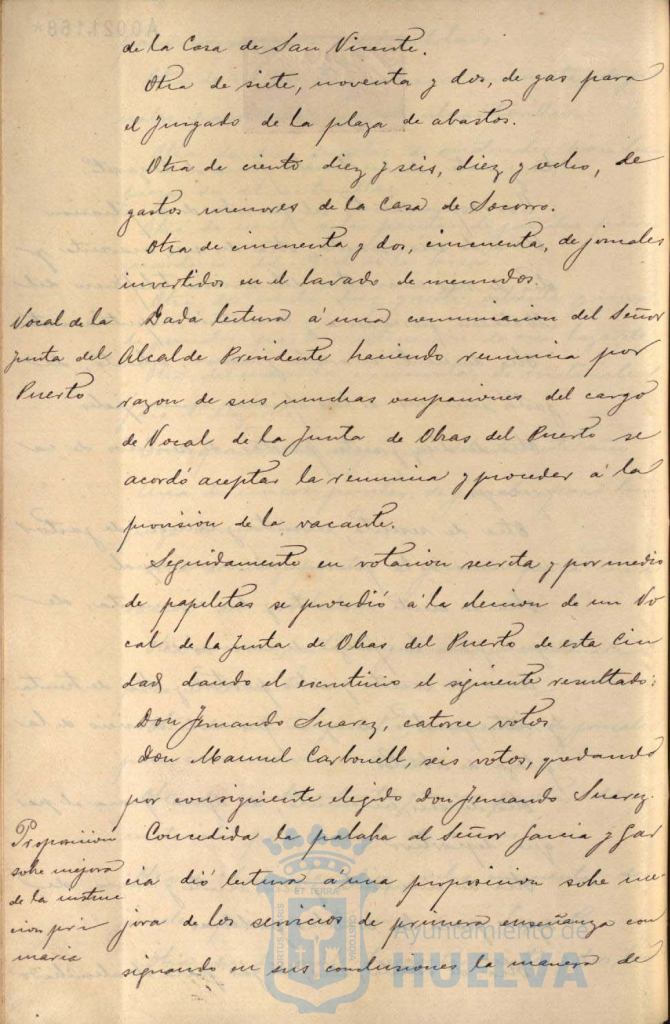 de la Casa de San Vicente.
Otra de siete, noventa y dos, de gas para
el Juzgado de la plaza de abastos.
Otra de ciento diez y seis, diez y ocho, de
gastos menores de la Casa de Socorro.
Otra de cincuenta y dos, cincuenta, de jornales
invertidos en el lavado de menudos.
Vocal de la
Junta del
Puerto
Dada lectura á una comunicacion del Señor
Alcalde Presidente haciendo renuncia por
razon de sus muchas ocupaciones del cargo
de Vocal de la Junta de Obras del Puerto se
acordó aceptar la renuncia y proceder á la
provision de la vacante.
Seguidamente en votacion secreta y por medio
de papeletas se procedió á la eleccion de un Vo
cal de la Junta de Obras del Puerto de esta Ciu
dad, dando el escrutinio el siguiente resultado:
Don Fernando Suarez, catorce votos
Don Manuel Carbonell, seis votos, quedando
por consiguiente elegido Don Fernando Suarez.
Proposicion
sobre mejora
de la instruc
cion pri
maria
Concedida la palabra al Señor Garcia y Gar
cia dió lectura á una proposicion sobre me
jora de los servicios de primera enseñanza con
signando en sus conclusiones la manera de
Ayuntamiento de
HUELVA